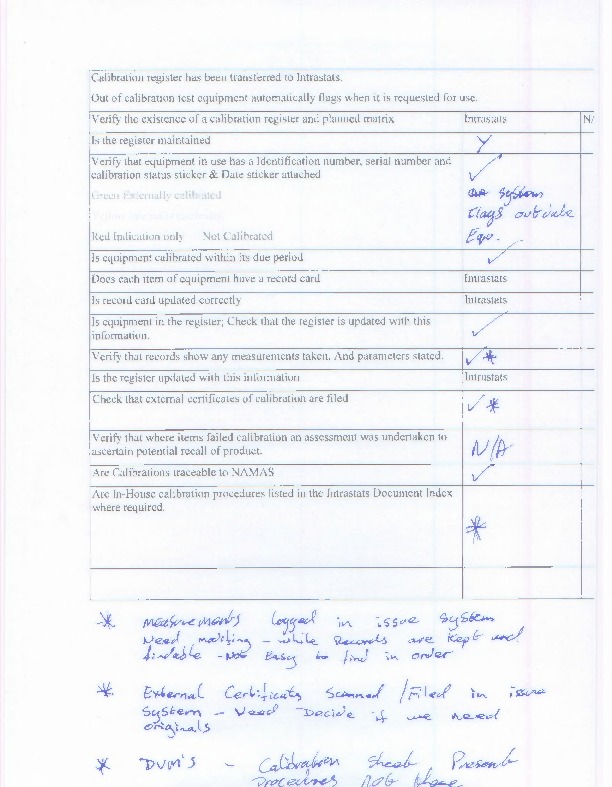 Calibration register has been transferred to Intrastats.
Out of calibration test equipment automatically flags when it is requested for use.
Verify the existence of a calibration register and planned matrix Intrastats N/
Is the register maintained Y
Verify that equipment in use has a Identification number, serial number and
calibration status sticker & Date sticker attached ✓
Green Externally calibrated system
flags out date
Red Indication only Not Calibrated Eqp.
Is equipment calibrated within its due period ✓
Does each item of equipment have a record card Intrastats
Is record card updated correctly Intrastats
Is equipment in the register; Check that the register is updated with this
information. ✓
Verify that records show any measurements taken. And parameters stated. ✓ *
Is the register updated with this information Intrastats
Check that external certificates of calibration are filed ✓ *
Verify that where items failed calibration an assessment was undertaken to
ascertain potential recall of product. N/A
Are Calibrations traceable to NAMAS ✓
Are In-House calibration procedures listed in the Intrastats Document Index
where required. *
* Measurements logged in issue system
Need - while Records are kept and
findable - Not Easy to find in order
* External Certificates Scanned / Filed in issue
System - Need Decide if we need
originals
* DVM'S - Calibration Sheet Present
Procedures Not